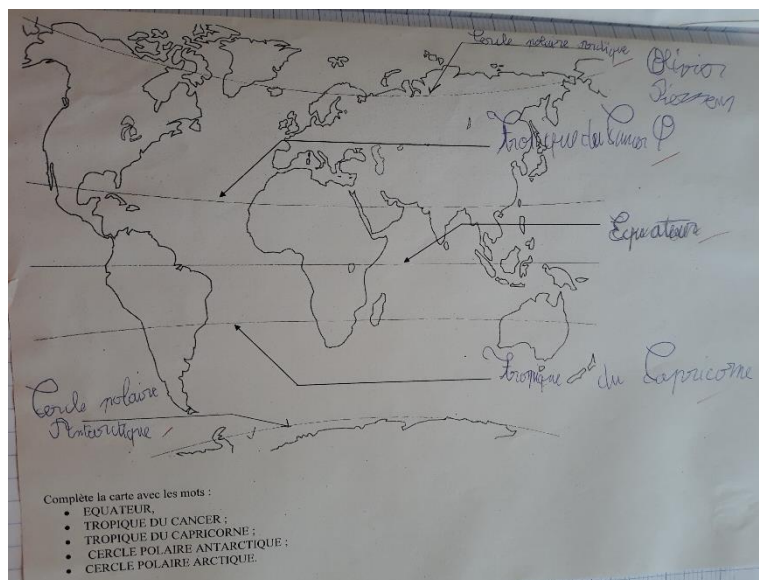 Cercle polaire
Olivier
Tropique du Cancer
Equateur
Tropique du Capricorne
Cercle polaire
Antarutique
Complète la carte avec les mots :
• EQUATEUR,
• TROPIQUE DU CANCER ;
• TROPIQUE DU CAPRICORNE ;
• CERCLE POLAIRE ANTARCTIQUE ;
• CERCLE POLAIRE ARCTIQUE.